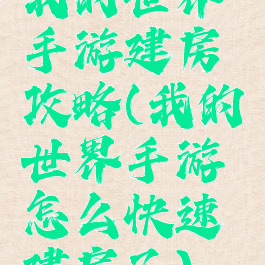 我的世界
手游建房
攻略(我的
世界手游
怎么快速
建房子)